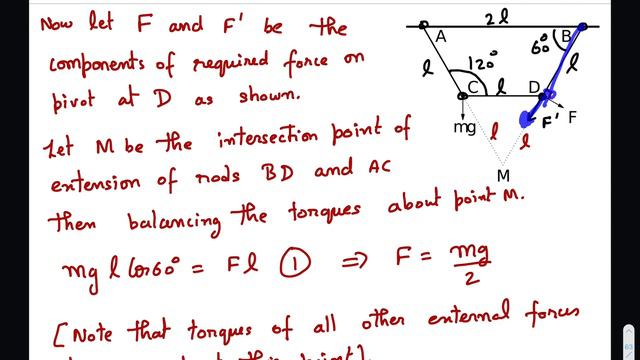 Now let F and F' be the
components of required force on
pivot at D as shown.
Let M be the intersection point of
extension of rods BD and AC
Then balancing the torques about point M.
mg l Cos60° = Fl ① ⇒ F = mg/2
[Note that torques of all other external forces
2l
A
B
60°
l
120°
l
C
l
D
mg
l
l
F'
F
M
63